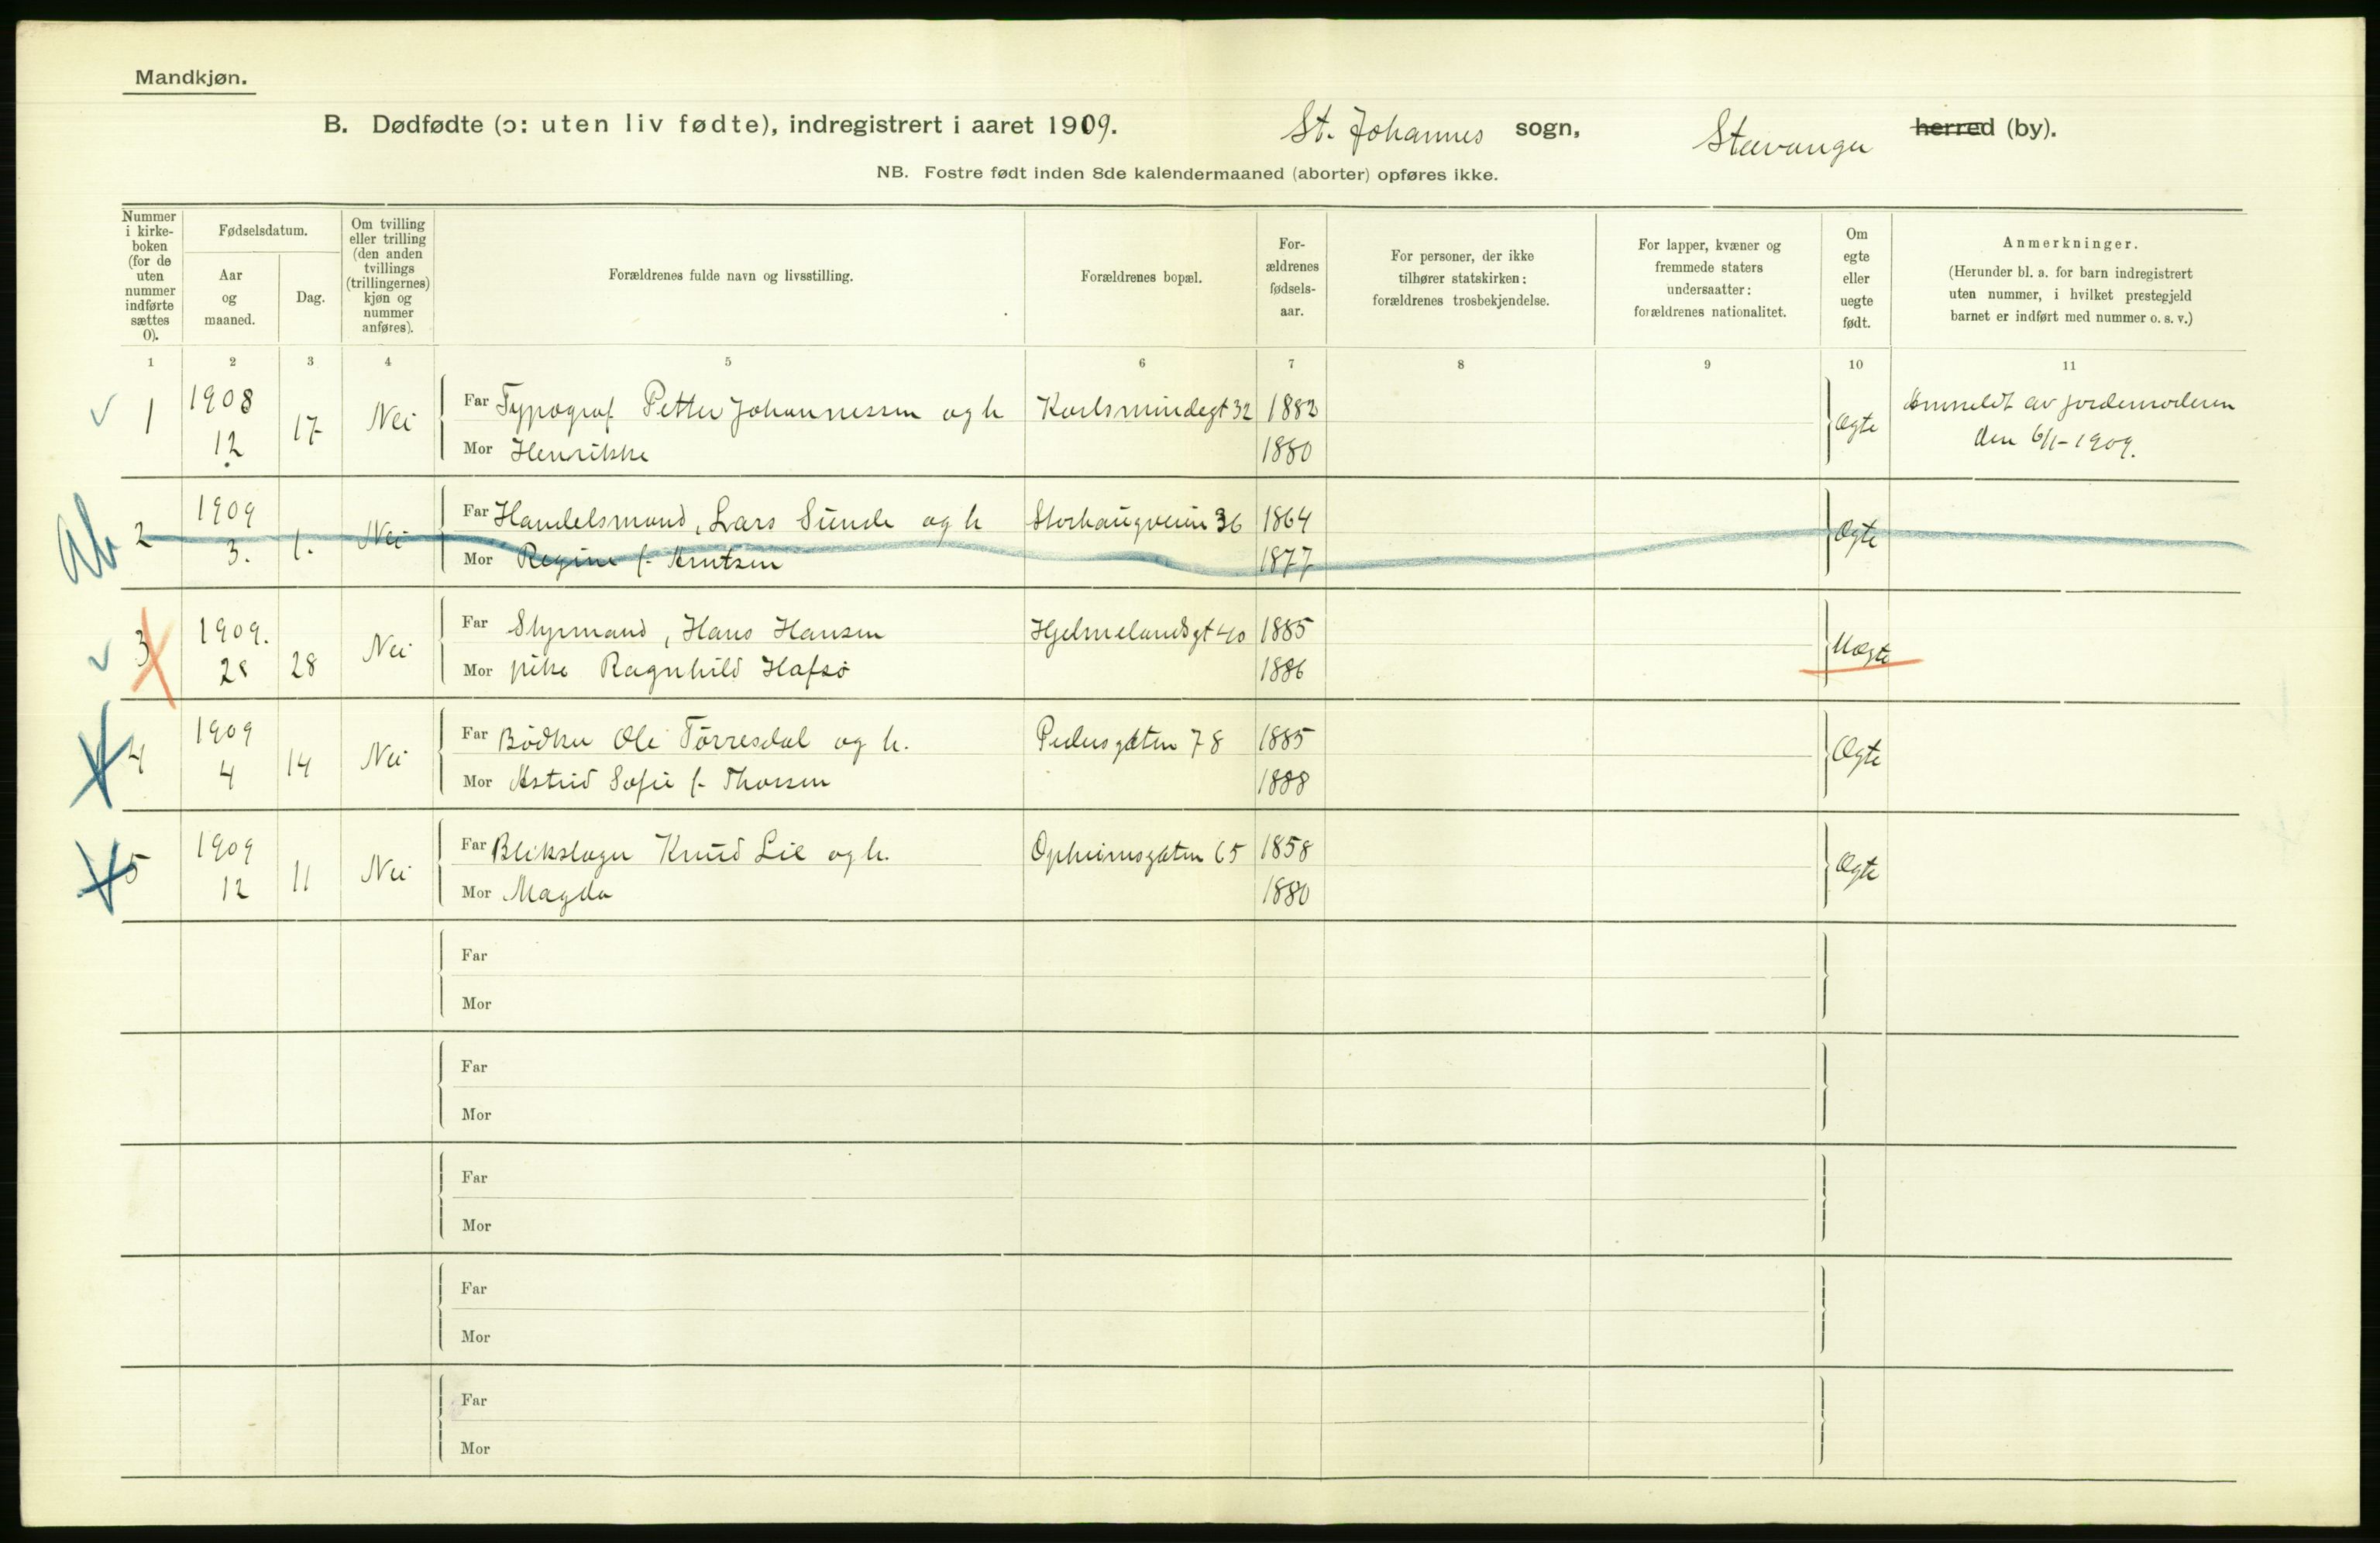 Mandkjøn.
B. Dødfødte (ɔ: uten liv fødte), indregistrert i aaret 1909. St. Johannes sogn, Stavanger herred (by).
NB. Fostre født inden 8de kalendermaaned (aborter) opføres ikke.
Nummer i kirke-boken (for de uten nummer indførte sættes 0).
Fødselsdatum.
Aar og maaned.
Dag.
Om tvilling eller trilling (den anden tvillings (trillingernes) kjøn og nummer anføres).
Forældrenes fulde navn og livsstilling.
Forældrenes bopæl.
For-ældrenes fødsels-aar.
For personer, der ikke tilhører statskirken: forældrenes trosbekjendelse.
For lapper, kvæner og fremmede staters undersaatter: forældrenes nationalitet.
Om egte eller uegte født.
Anmerkninger.
(Herunder bl. a. for barn indregistrert uten nummer, i hvilket prestegjeld barnet er indført med nummer o. s. v.)
1 2 3 4 5 6 7 8 9 10 11
1 1908 12 17 Nei Far Typograf Petter Johannessen og h Karlsmindegt 32 1882 Ægte Anmeldt av jordemoderen
Mor Henrikke 1880 den 6/1-1909.
Ab 2 1909 3. 1. Nei Far Handelsmand, Lars Sunde og h Storhaugveien 36 1864 Ægte
Mor Regine f. Knutsen 1877
3 1909. 28 28 Nei Far Styrmand, Hans Hansen Hjelmelandsgt 40 1885 Uægte
Mor pike Ragnhild Hafsø 1886
4 1909 4 14 Nei Far Bødker Ole Tørresdal og h. Pedersgaten 78 1885 Ægte
Mor Astrid Sofie f. Thorsen 1888
5 1909 12 11 Nei Far Blikslager Knud Lie og h. Opheimsgaten 65 1858 Ægte
Mor Magda 1880
Far
Mor
Far
Mor
Far
Mor
Far
Mor
Far
Mor